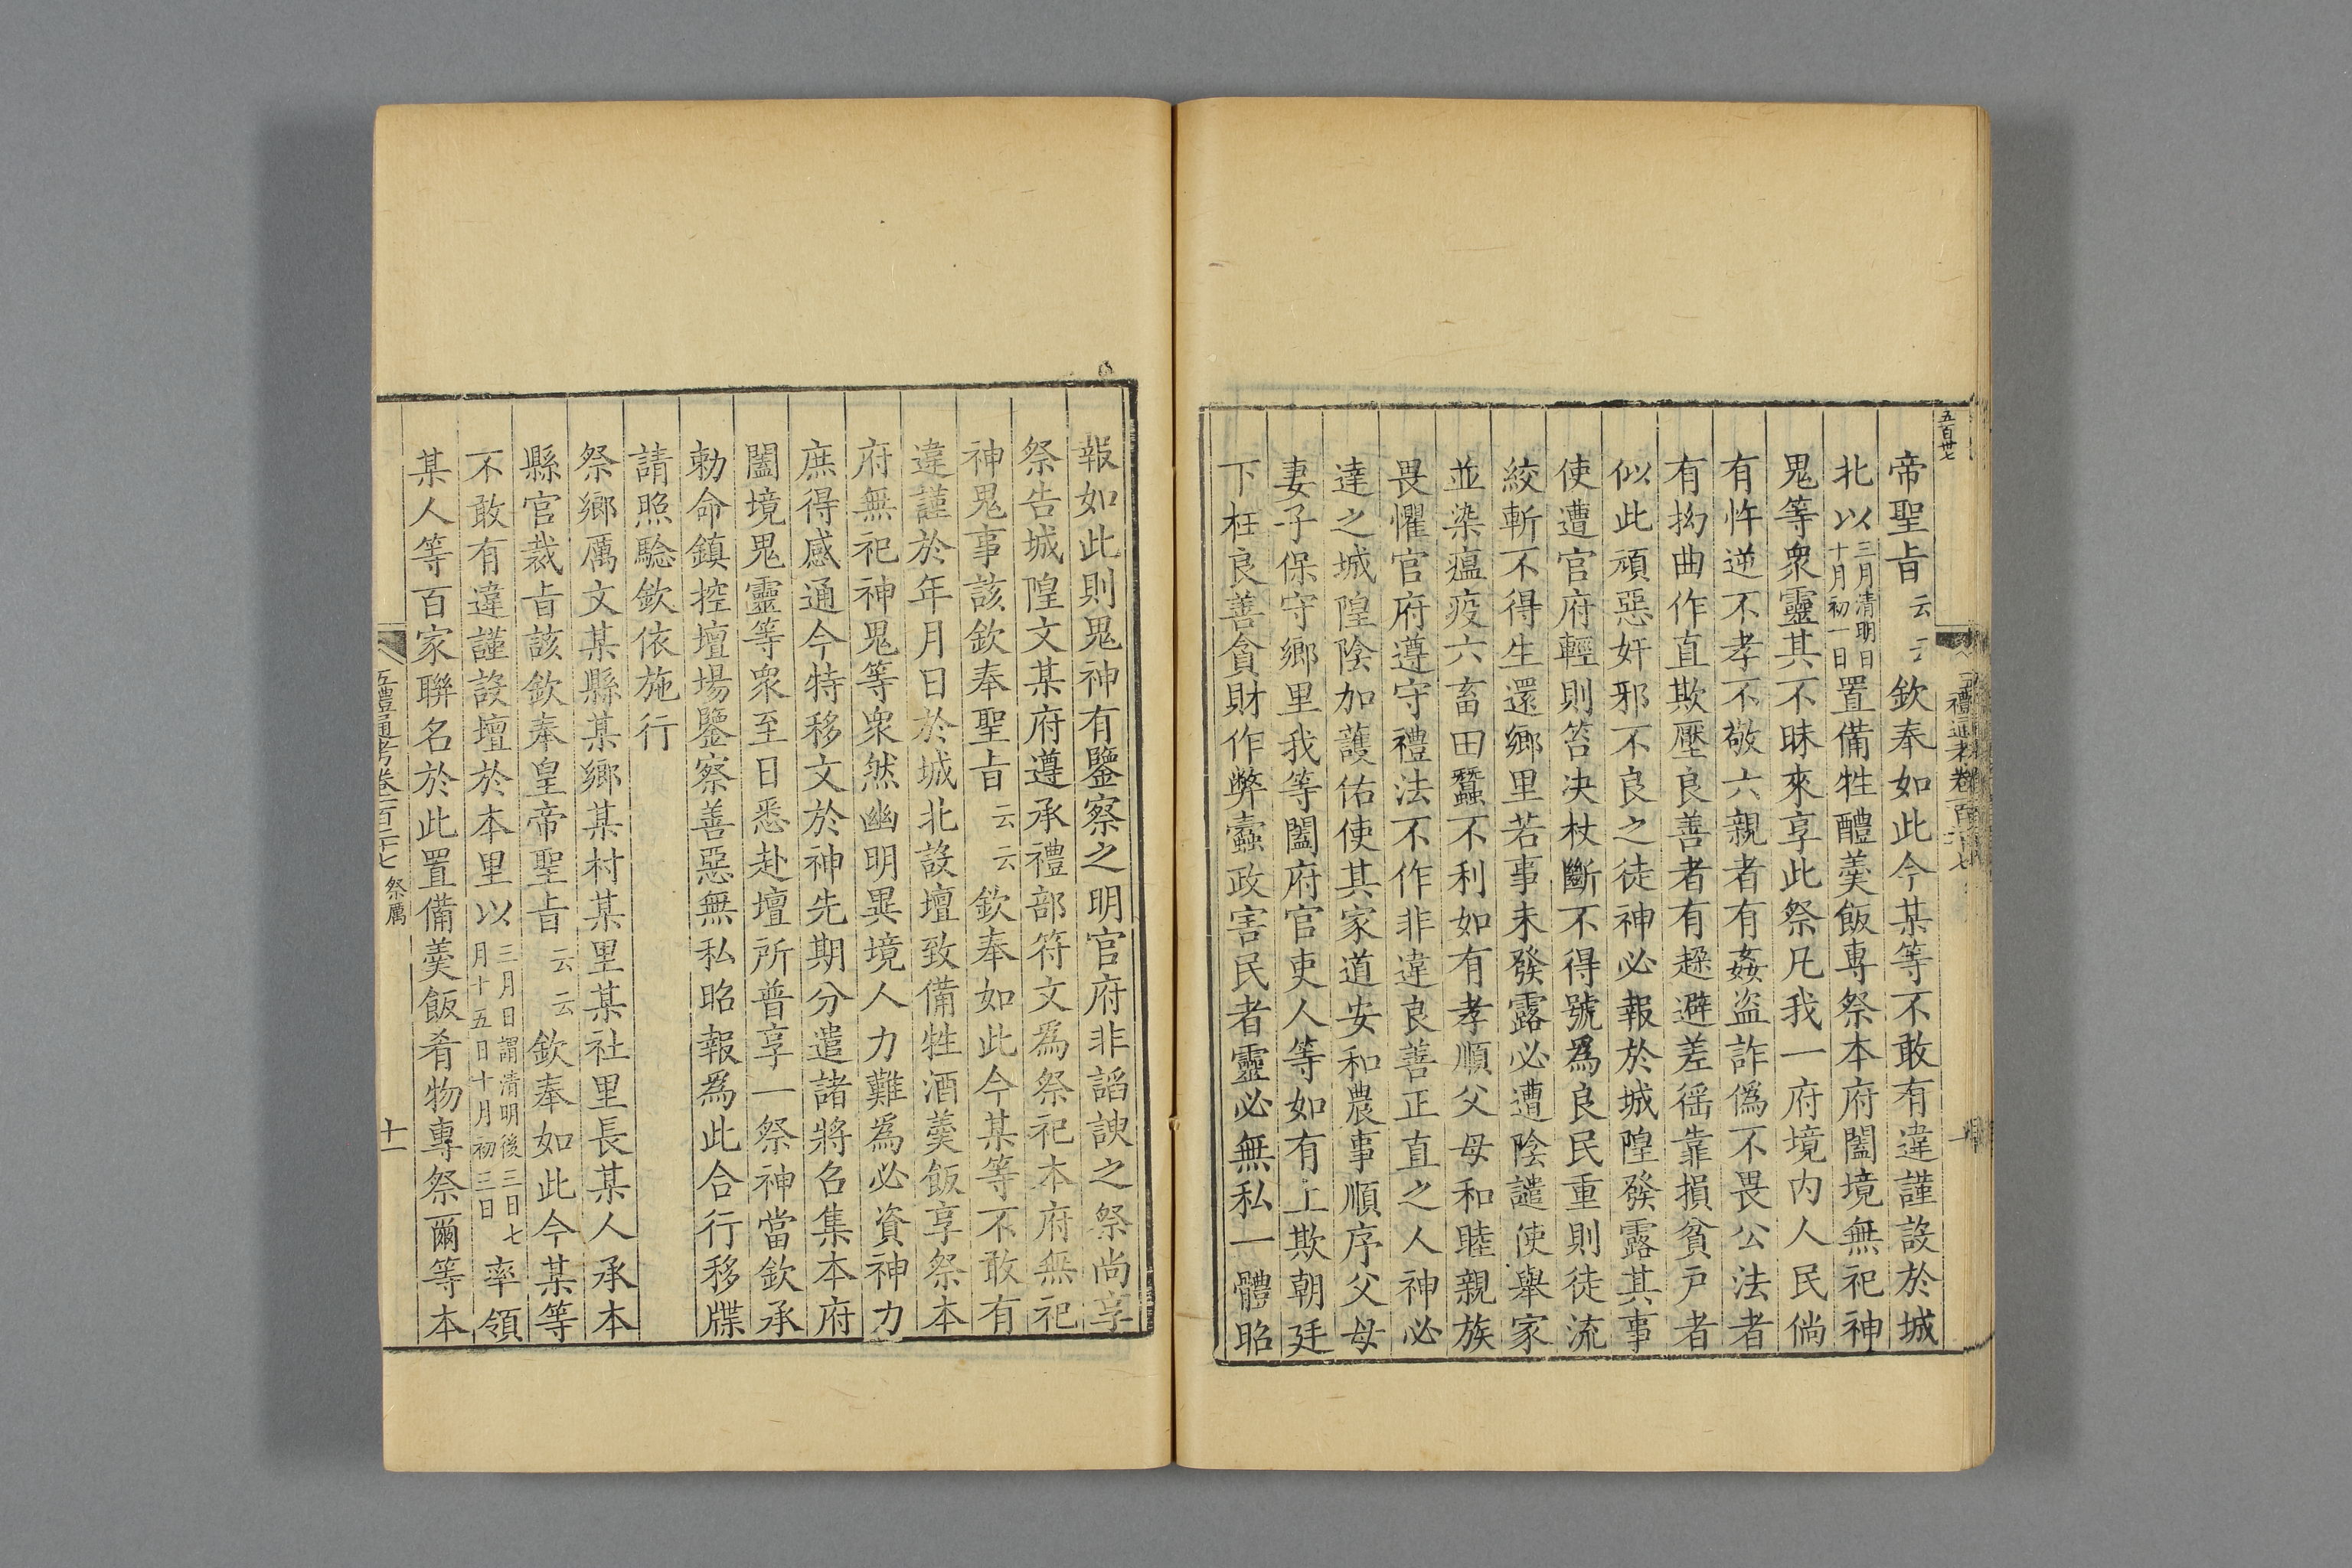 五百卅七
帝聖旨云云欽奉如此今某等不敢有違謹設於城
北以三月清明日十月初一日置備牲醴羹飯專祭本府闔境無祀神
鬼等衆靈其不昧來享此祭凡我一府境内人民倘
有忤逆不孝不敬六親者有姦盗詐僞不畏公法者
有拗曲作直欺壓良善者有趓避差徭靠損貧戸者
似此頑惡奸邪不良之徒神必報於城隍發露其事
使遭官府輕則笞决杖斷不得號爲良民重則徒流
絞斬不得生還鄉里若事未發露必遭陰譴使舉家
並染瘟疫六畜田蠶不利如有孝順父母和睦親族
畏懼官府遵守禮法不作非違良善正直之人神必
達之城隍陰加護佑使其家道安和農事順序父母
妻子保守鄉里我等闔府官吏人等如有上欺朝廷
下枉良善貪財作弊蠹政害民者靈必無私一體昭
報如此則鬼神有鑒察之明官府非謟諛之祭尚享
祭告城隍文某府遵承禮部符文爲祭祀本府無祀
神鬼事該欽奉聖旨云云欽奉如此今某等不敢有
違謹於年月日於城北設壇致備牲酒羹飯享祭本
府無祀神鬼等衆然幽明異境人力難爲必資神力
庶得感通今特移文於神先期分遣諸將名集本府
闔境鬼靈等衆至日悉赴壇所普享一祭神當欽承
勅命鎮控壇場鑒察善惡無私昭報爲此合行移牒
請照驗欽依施行
祭鄉厲文某縣某鄉某村某里某社里長某人承本
縣官裁旨該欽奉皇帝聖旨云云欽奉如此今某等
不敢有違謹設壇於本里以三月日謂清明後三日七月十五日十月初三日率領
某人等百家聯名於此置備羹飯肴物專祭爾等本
五禮通考卷一百二十七 祭厲 十一